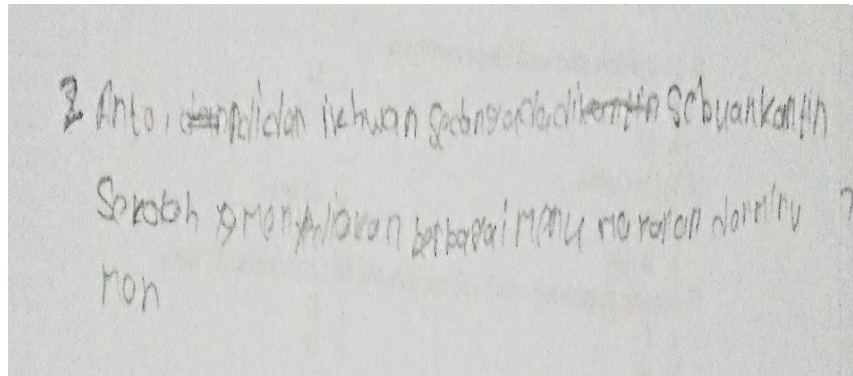 2 Anto, didan ikhwan sedang ada di sebuankantin
Sekolah yg menyediakan berbagai menu makanan danminu
man